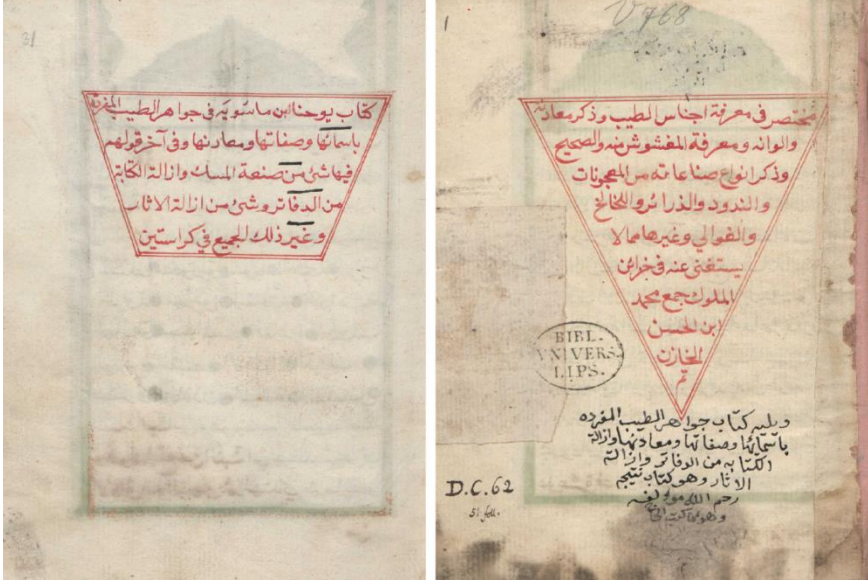 31
كتاب يوحنا ابن ماسويه في جواهر الطيب المفردة
باسمائها وصفاتها ومعادنها وفي آخر قولهم
فيها شئ من صنعة المسك وازالة الكتابة
من الدفاتر وشئ من ازالة الاثار
وغير ذلك الجميع في كراستين
1
V 768
مختصر في معرفة اجناس الطيب وذكر معادنه
والوانه ومعرفة المغشوش منه والصحيح
وذكر انواع صناعاته من المعجونات
والندود والذرائر واللخالخ
والغوالي وغيرها مما لا
يستغنى عنه في خزائن
الملوك جمع محمد
ابن الحسن
الخازن
تم
BIBL.
VNIVERS.
LIPS.
ويليه كتاب جواهر الطيب المفرده
باسمائها وصفاتها ومعادنها وازالة
الكتابه من الدفاتر وازالة
الاثار وهو كتاب نتيجه
رحم الله مولفه
D.C. 62
51 foll.